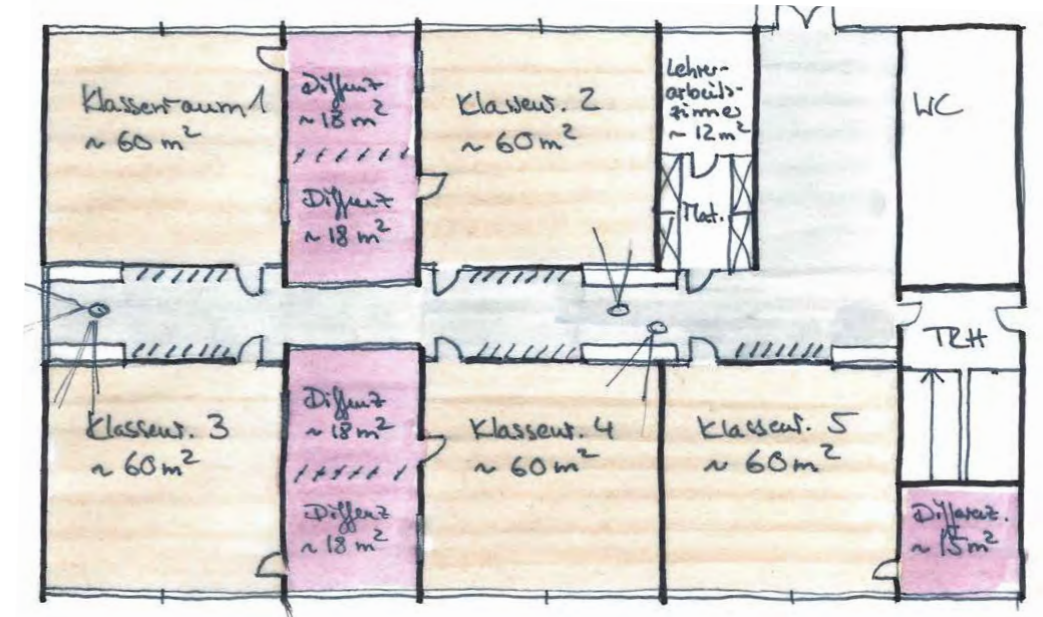 Klassenraum 1
~ 60 m²
Differenz
~ 18 m²
Differenz
~ 18 m²
Klassenr. 2
~ 60 m²
Lehrer-
arbeits-
zimmer
~ 12 m²
Mat.
WC
TRH
Klassenr. 3
~ 60 m²
Differenz
~ 18 m²
Differenz
~ 18 m²
Klassenr. 4
~ 60 m²
Klassenr. 5
~ 60 m²
Differenz.
~ 15 m²